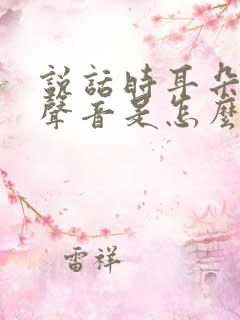 說話時耳朵
聲音是怎麼
雷祥